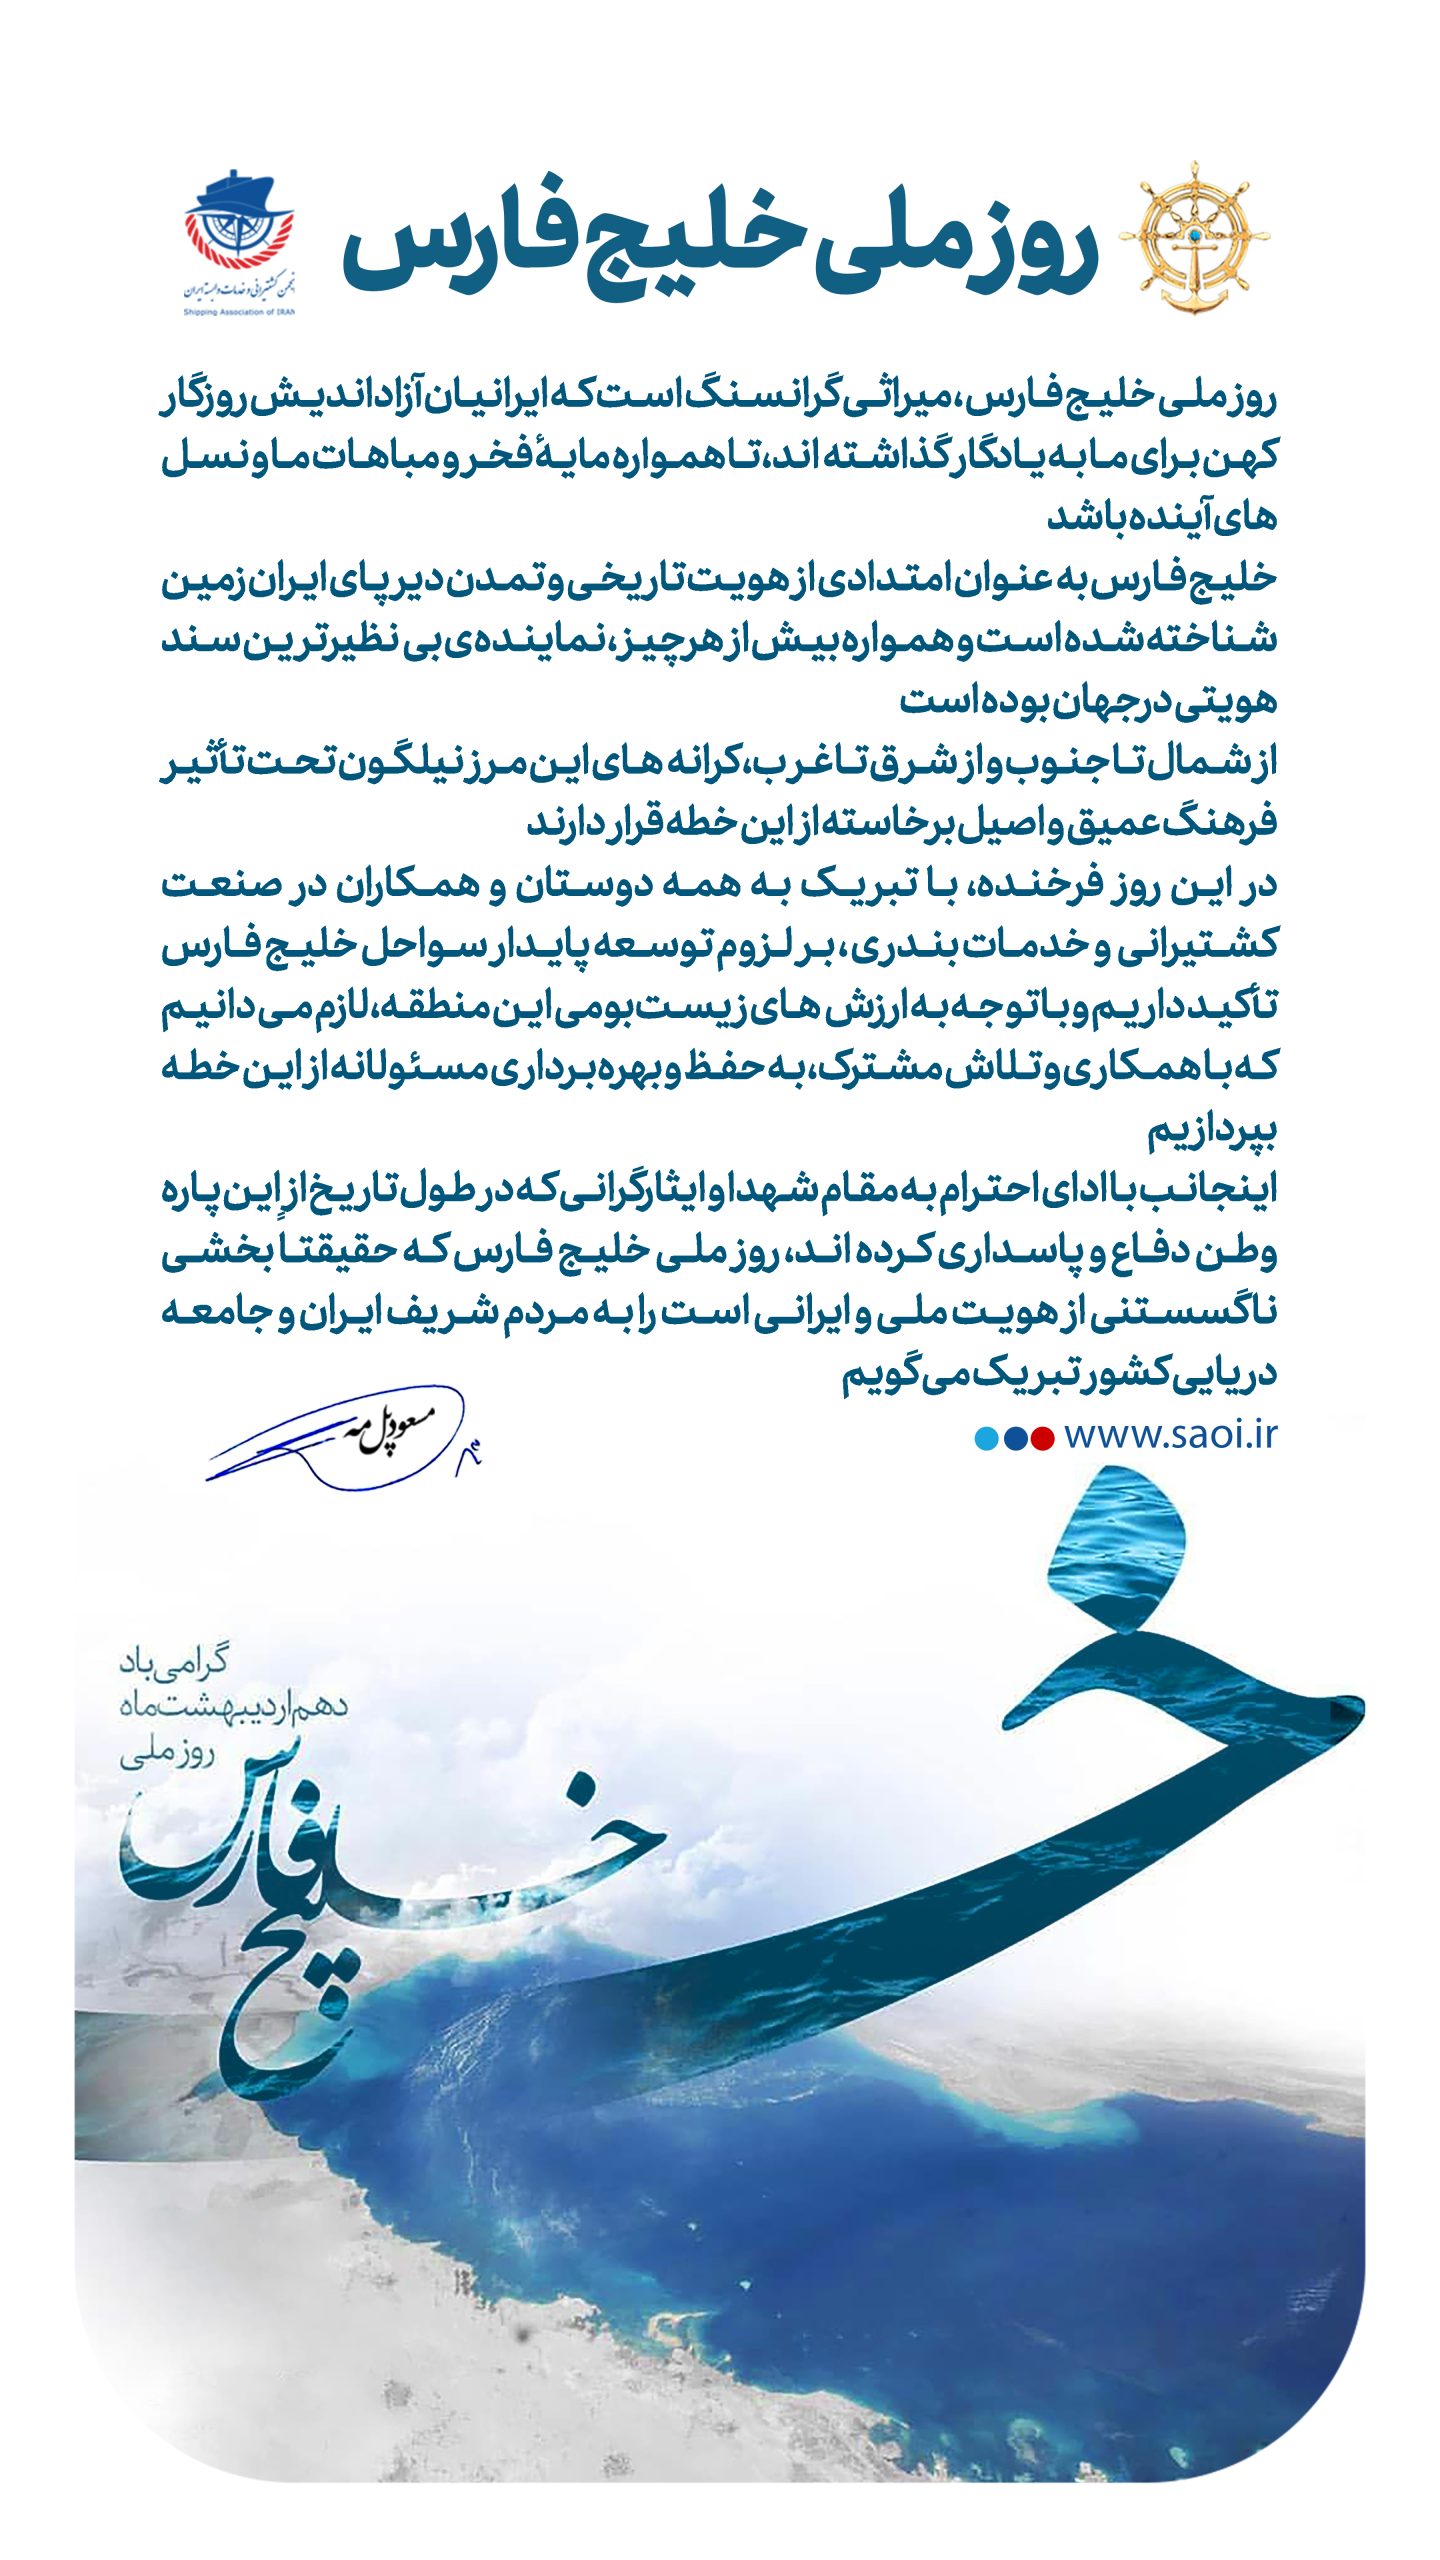 روز ملی خلیج فارس
انجمن کشتیرانی و خدمات وابسته ایران
Shipping Association of IRAN
روز ملی خلیج فارس، میراثی گرانسنگ است که ایرانیان آزاداندیش روزگار
کهن برای ما به یادگار گذاشته اند، تا همواره مایهٔ فخر و مباهات ما و نسل
های آینده باشد
خلیج فارس به عنوان امتدادی از هویت تاریخی و تمدن دیرپای ایران زمین
شناخته شده است و همواره بیش از هرچیز، نماینده‌ی بی نظیرترین سند
هویتی در جهان بوده است
از شمال تا جنوب و از شرق تا غرب، کرانه های این مرز نیلگون تحت تأثیر
فرهنگ عمیق و اصیل برخاسته از این خطه قرار دارند
در این روز فرخنده، با تبریک به همه دوستان و همکاران در صنعت
کشتیرانی و خدمات بندری، بر لزوم توسعه پایدار سواحل خلیج فارس
تأکید داریم و با توجه به ارزش های زیست بومی این منطقه، لازم می دانیم
که با همکاری و تلاش مشترک، به حفظ و بهره برداری مسئولانه از این خطه
بپردازیم
اینجانب با ادای احترام به مقام شهدا و ایثارگرانی که در طول تاریخ از اِین پاره
وطن دفاع و پاسداری کرده اند، روز ملی خلیج فارس که حقیقتاً بخشی
ناگسستنی از هویت ملی و ایرانی است را به مردم شریف ایران و جامعه
دریایی کشور تبریک می گویم
www.saoi.ir
مسعود پل مه
گرامی باد
دهم اردیبهشت ماه
روز ملی
خلیج فارس
خ